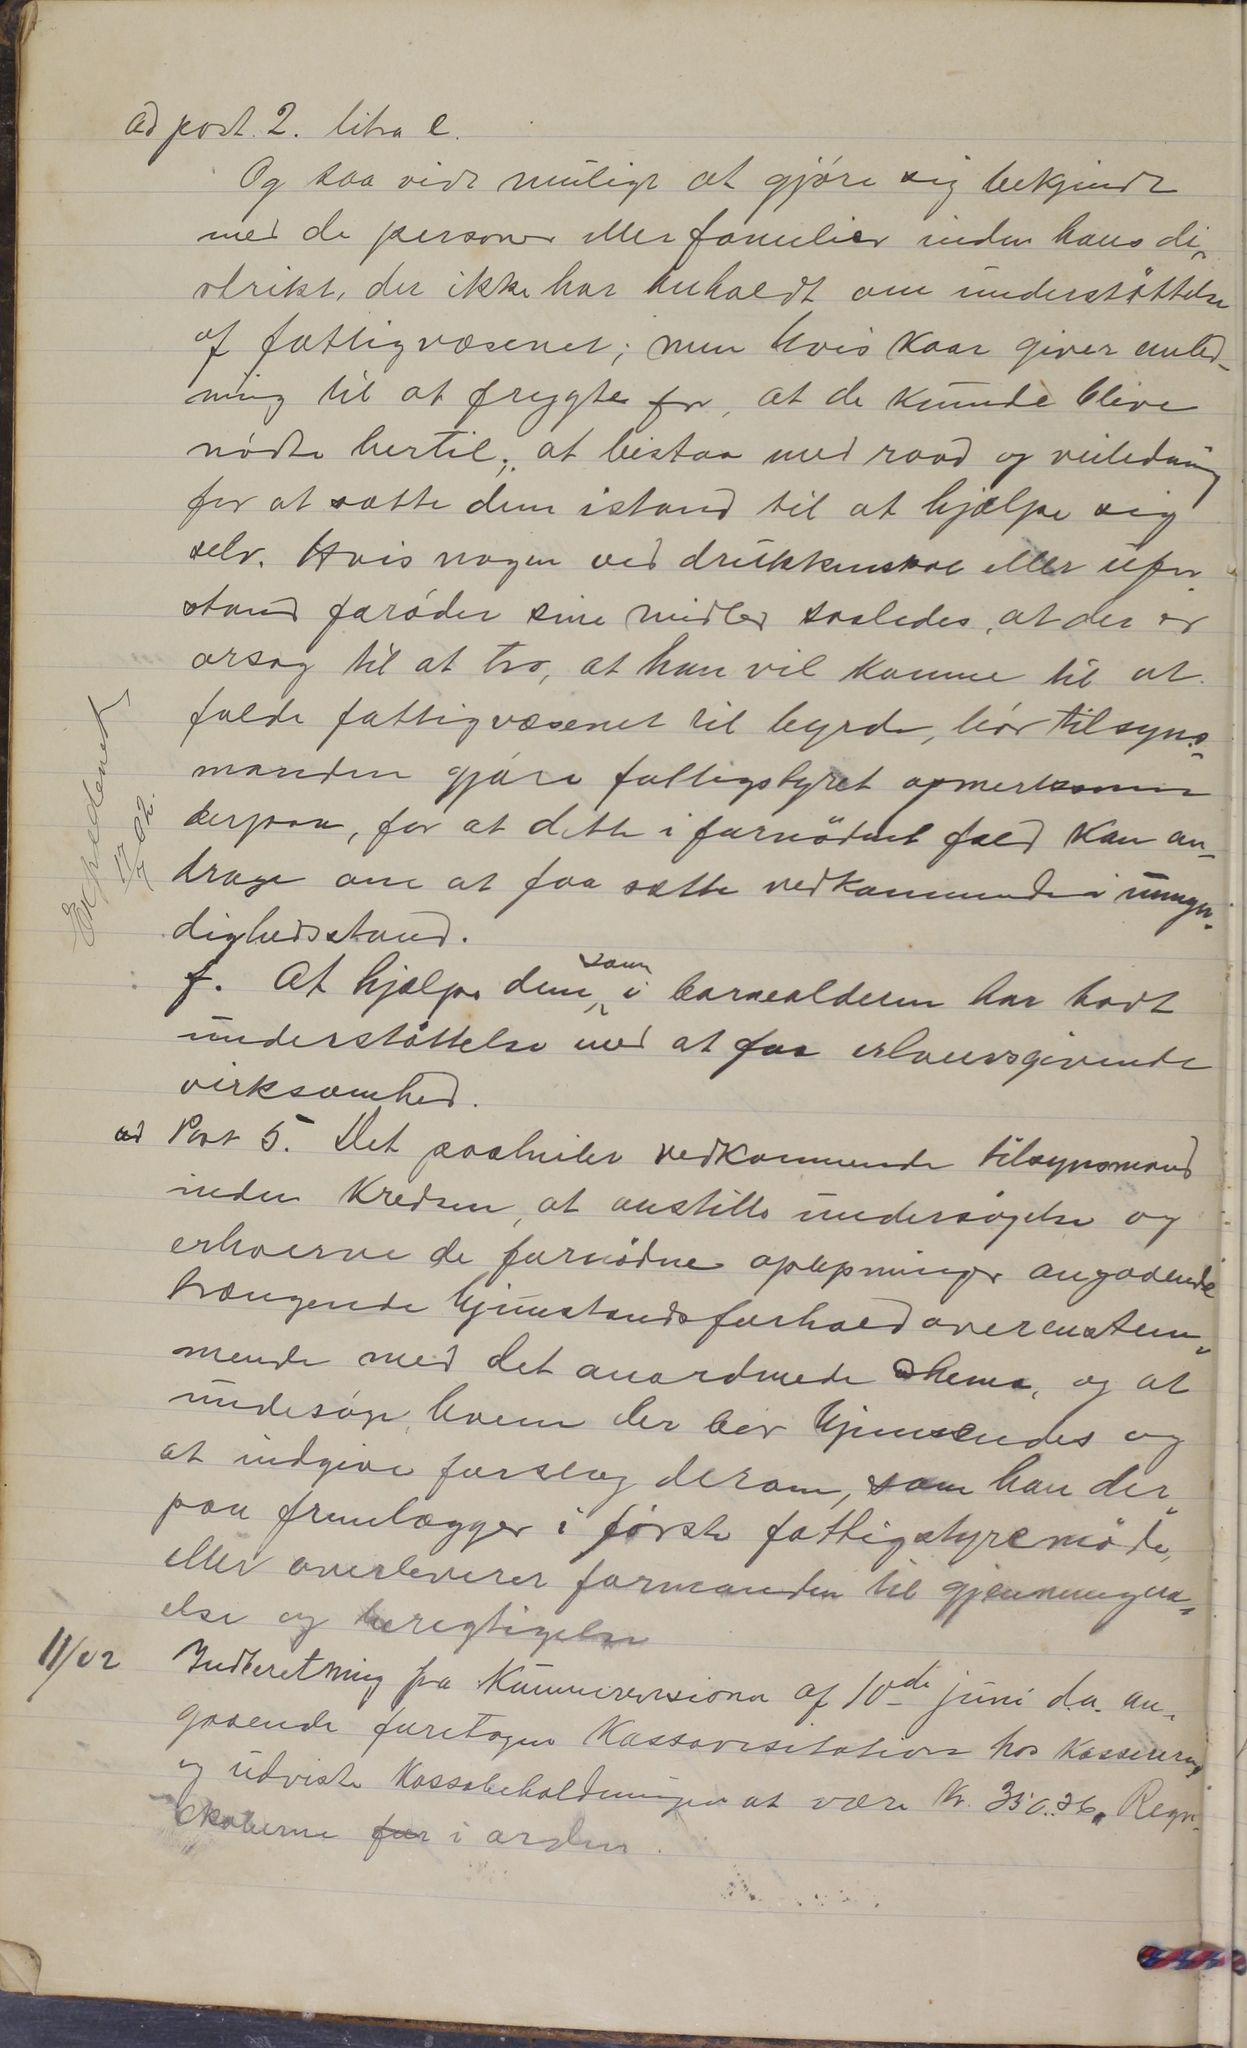 Ad post. 2. litra e.
Og saa vidt muligt at gjöre sig bekjendt
med de personer eller familier inden hans di-
strikt, der ikke har anholdt om understöttelse
af fattigvæsenet; men hvis kaar giver anled-
ning til at frygte for, at de kunde blive
nödte hertil; at bistaa med raad og veiledning
for at sætte dem istand til at hjælpe sig
selv. Hvis nogen ved drukkenskab eller ufor
stand foröder sine midler saaledes, at der er
aarsag til at tro, at han vil komme til at
falde fattigvæsenet til byrde, bör tilsyns-
manden gjöre fattigstyret opmerksom
derpaa, for at dette i fornödent fald kan an-
drage om at faa sætte vedkommende i umyn-
dighedsstand.
Expederet
17/7 02.
f. At hjælpe dem, som i barnealderen har havt
understöttelse med at faa erhvervsgivende
virksomhed.
ad Post 5. Det paahviler vedkommende tilsynsmand
inden kredsen, at anstille undersögelse og
erhverve de fornödne oplysninger angaaende
trængende hjemstandsforhold overenstem-
mende med det anordnede skema, og at
undersöge hvem der bör hjemsendes og
at indgive forslag derom, som han der-
paa fremlægger i förste fattigstyremöde,
eller overleverer formanden til gjennemgaa-
else og beregtigelse
11/02 Indberetning fra Kummerevisionen af 10de juni d.a. an-
gaaende foretagen Kassavisitation hos kassereren
og udviste kassabeholdningen at være Kr. 350.36. Regn-
skaberne for i orden.